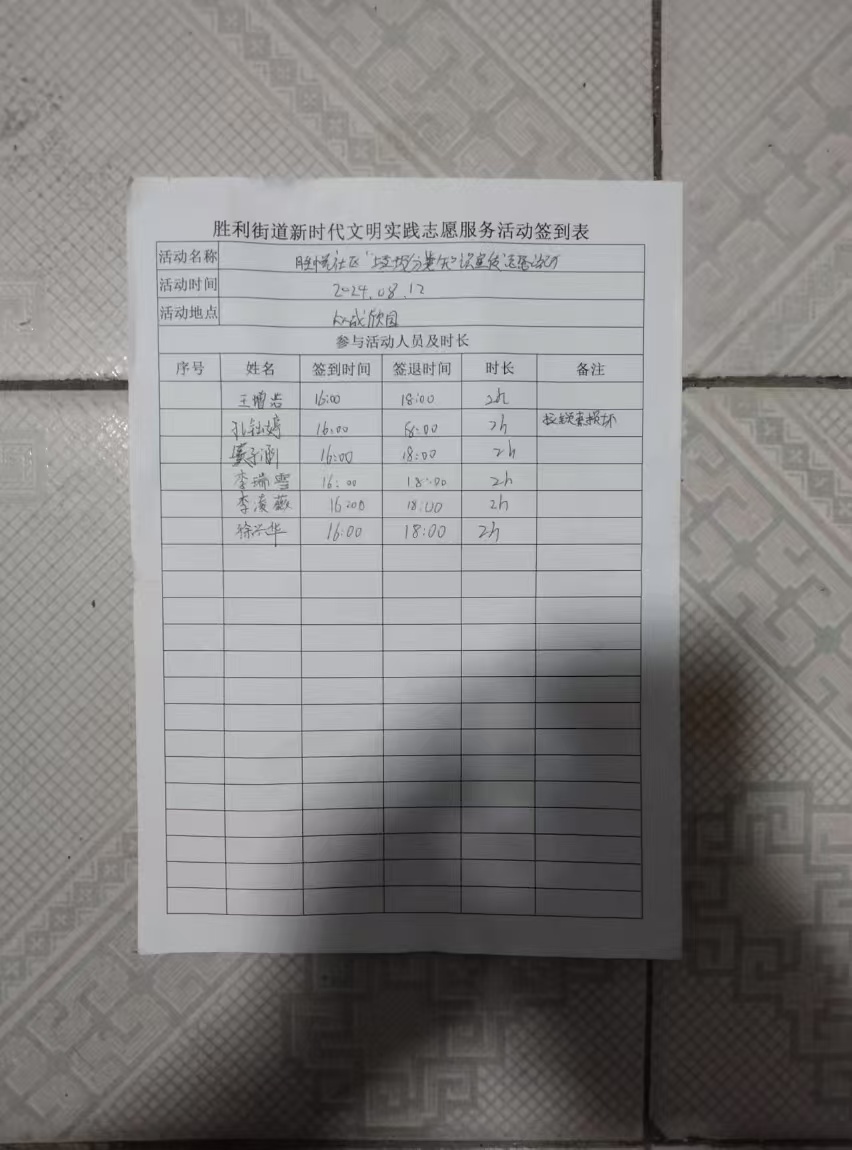 胜利街道新时代文明实践志愿服务活动签到表
活动名称 社区"垃圾分类知识宣传"志愿活动
活动时间 2024.08.12
活动地点 众成欣园
参与活动人员及时长
序号 姓名 签到时间 签退时间 时长 备注
王增浩 16:00 18:00 2h
孔钰婷 16:00 18:00 2h
16:00 18:00 2h
李瑞雪 16:00 18:00 2h
李凌薇 16:00 18:00 2h
徐兴华 16:00 18:00 2h